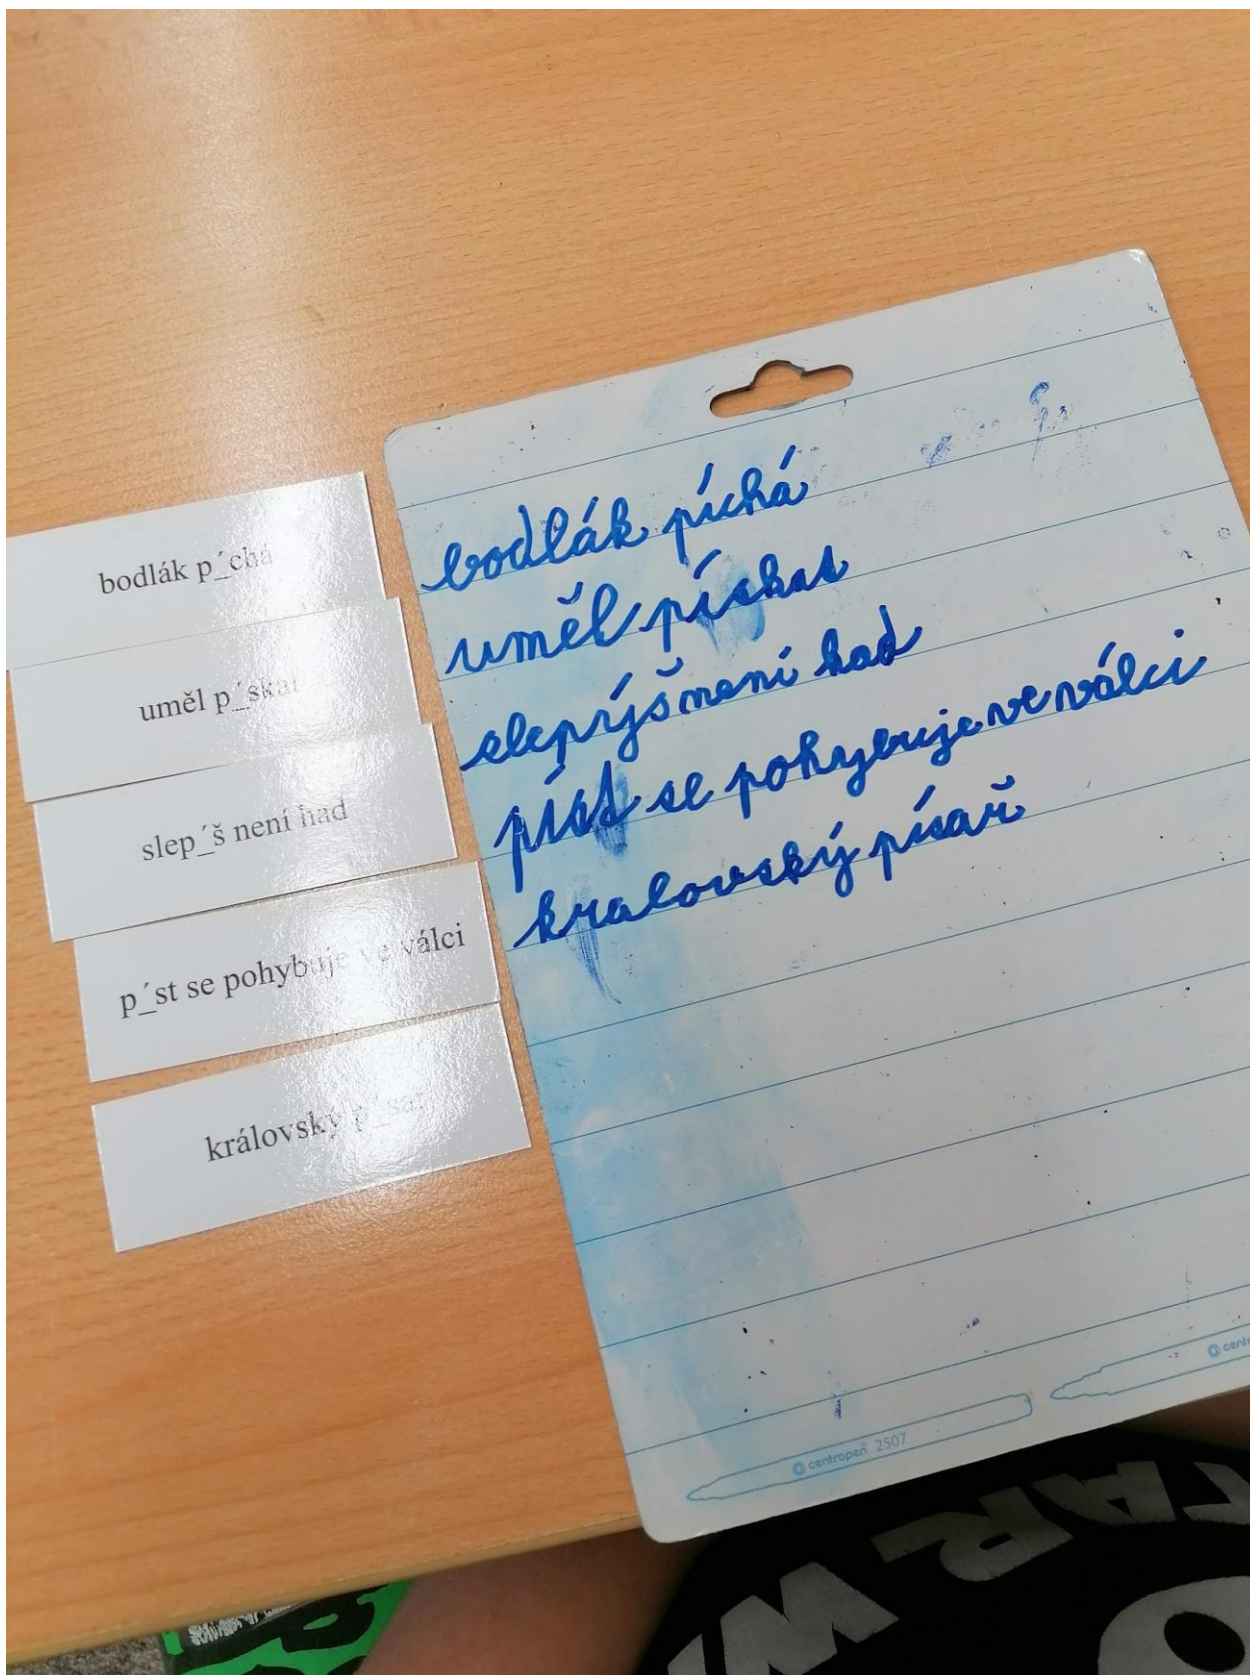 bodlák p´_chá
uměl p´_skat
slep_´š není had
p_´st se pohybuje ve válci
královský p_´sař
bodlák píchá
uměl pískat
slepýš není had
píst se pohybuje ve válci
kralovský písař
centropen 2507
centr
TAR
W